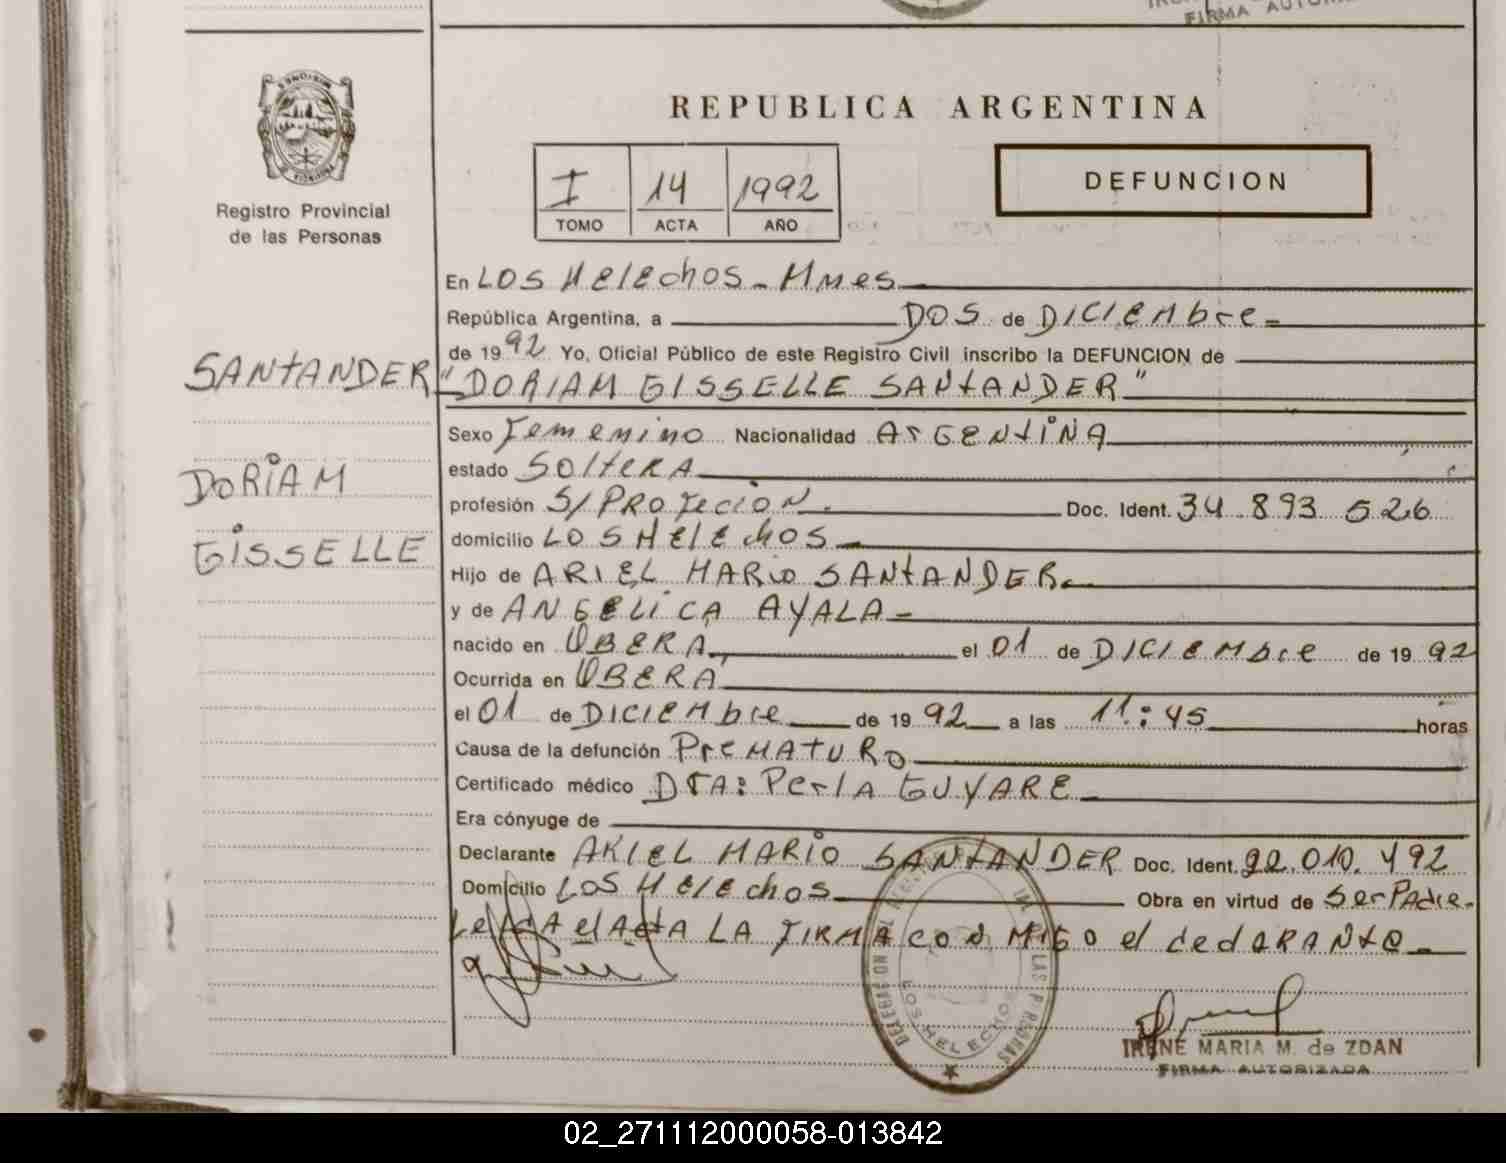 FIRMA AUTORI
REPUBLICA ARGENTINA
I 14 1992
TOMO ACTA AÑO
DEFUNCION
MISIONES
PROVINCIA D
Registro Provincial
de las Personas
SANTANDER
DORIAM
GISSELLE
En LOS HelechOS - MNes
República Argentina, a DOS de DICIEMbre
de 1992 Yo, Oficial Público de este Registro Civil inscribo la DEFUNCION de
"DORIAM GISSELLE SANtANDER"
Sexo Femenino Nacionalidad ArGENtiNA
estado SOlteRA
profesión S/PROFecioN. Doc. Ident. 34.893 526
domicilio LOS HElEchOS
Hijo de ARIEL MARio SANtANDER
y de ANGELiCA AYALA
nacido en OBERA, el 01 de DICIEMbre de 1992
Ocurrida en OBERA
el 01 de DICIEMbre de 1992 a las 11:45 horas
Causa de la defunción PreMAtURO
Certificado médico DrA: PerlA GUYARE
Era cónyuge de
Declarante ARIEL MARIO SANtANDER Doc. Ident. 22.010.492
Domicilio LOS HElEchos Obra en virtud de SerPAdre.
LeidA el ActA LA FIRMA coNMiGO el declARANte
LOS HELECHOS
LAS PERSONAS
IRENE MARIA M. de ZDAN
FIRMA AUTORIZADA
02_271112000058-013842